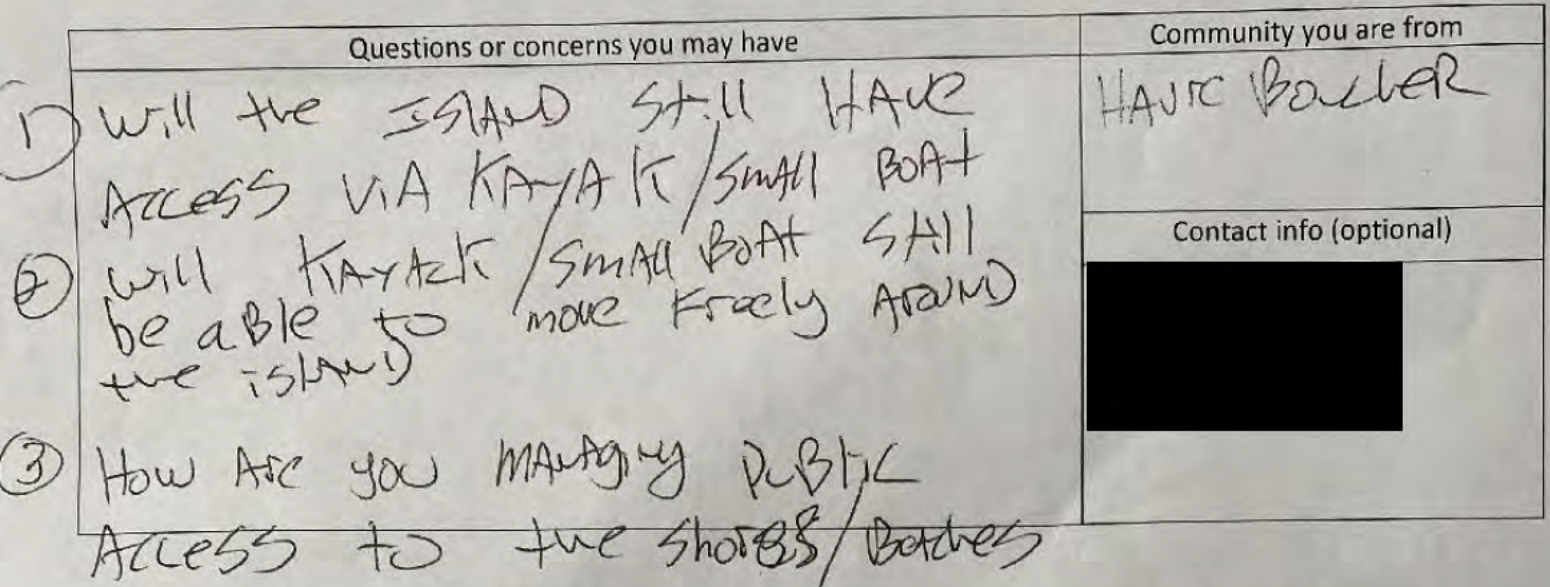 Questions or concerns you may have
Community you are from
1) Will the ISLAND Still HAVE
Access ViA KAYAK/Small BOAt
2 Will KAYAcK/SmAll BoAt StAll
be aBle to move Freely AroUND
the islAND
3 How Are you MANAging PuBliC
Access to the Shores/Beaches
HAVrE BOucHeR
Contact info (optional)